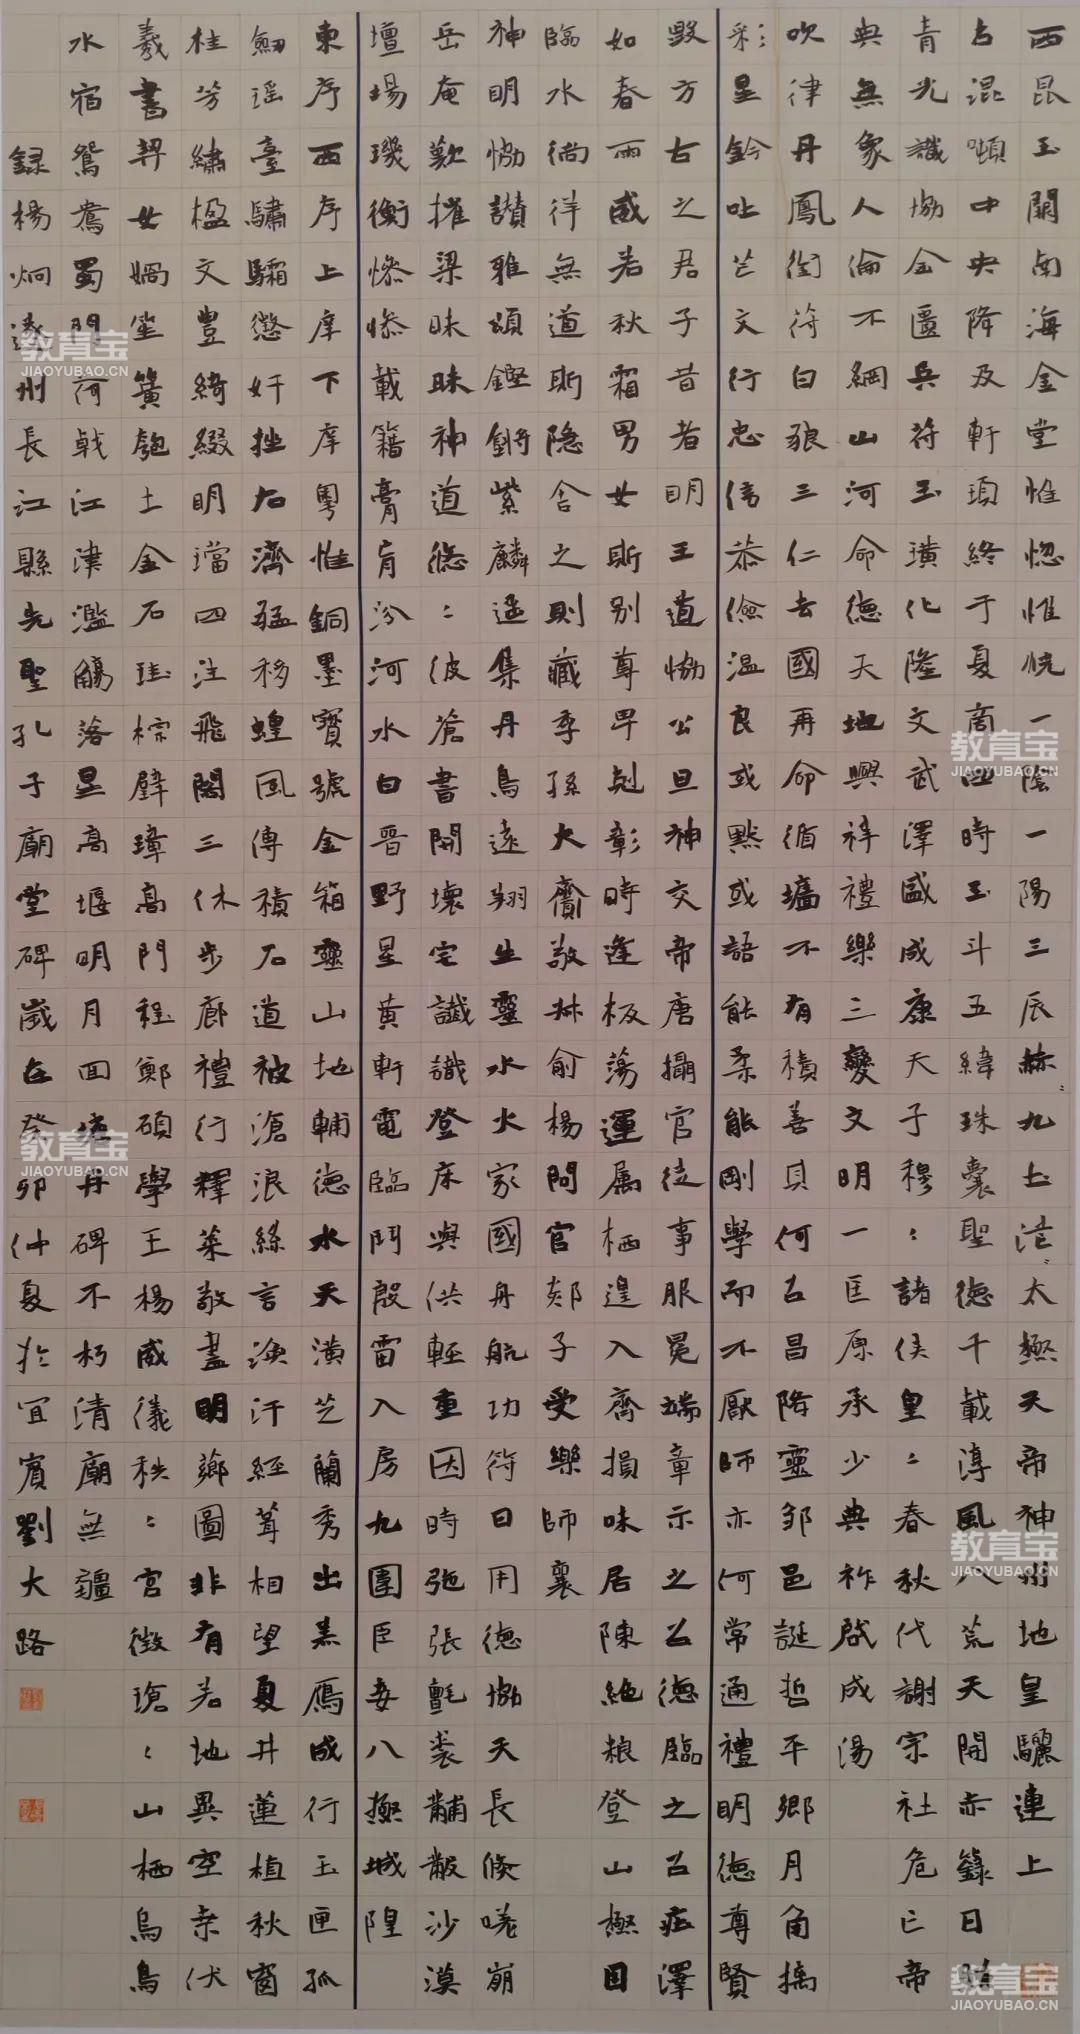 西昆玉關南海金堂惟惚惟恍一陰一陽三辰赫〻九土茫〻太極天帝神州地皇驪連上
古混噸中央降及軒頊終于夏商四時玉斗五緯珠囊聖德千載淳風八荒天開赤籙日
青光讖協金匱兵符玉璜化隆文武澤盛成康天子穆〻諸侯皇〻春秋代謝宗社危亡帝
典無象人倫不綱山河命德天地興祥禮樂三變文明一匡原承少典祚啟成湯
吹律丹鳳銜符白狼三仁去國再命循墻不有積善其何以昌降靈邹邑誕哲平鄉月角摛
彩星鈐吐芒文行忠信恭儉溫良或默或語能柔能剛學而不厭師亦何常通禮明德尊賢
毀方古之君子昔者明王道協公旦神交帝唐攝官從事服冕端章示之以德臨之以莊澤
如春雨威若秋霜男女斯别尊卑剋彰時逢板蕩運属栖遑入齊損味居陳絶粮登山極目
臨水徜徉無道斯隱舍之則藏季孫大賚敬叔俞楊問官郯子受樂師襄
神明協讃雅頌鏗鏘紫麟遥集丹鳥遠翔生靈水火家國舟航功符日用德協天長倏嗟崩
岳奄歎摧梁昧昧神道悠〻彼蒼書開壞宅讖識登床輿供輕重因時弛張氈裘黼黻沙漠
壇場璣衡慘慘載籍膏肓汾河水白晉野星黃軒電臨鬥殷雷入房九圍臣妾八極城隍
東序西序上庠下庠粵惟銅墨寶號金箱靈山地輔德水天潢芝蘭秀出素鴈成行玉匣孤
劒瑶臺驌驦懲奸挫右濟猛移蝗風傳積石道被滄浪絲言渙汗經葺相望夏井蓮植秋窗
桂芳繡楹文豊綺綴明璫四注飛閣三休步廊禮行釋菜敬盡明薌圖非有若地異空桒伏
羲書契女媧笙簧匏土金石珪琮璧璋高門程鄭碩學王楊威儀秩〻宮徵瑲〻山栖烏鳥
水宿鴛鴦蜀門河戟江津濫觴落星高堰明月回塘丹碑不朽清廟無疆
録楊炯遂州長江縣先聖孔子廟堂碑歲在癸卯仲夏於宜賓劉大路
教育宝
JIAOYUBAO.CN
教育宝
JIAOYUBAO.CN
教育宝
JIAOYUBAO.CN
教育宝
JIAOYUBAO.CN
教育宝
JIAOYUBAO.CN